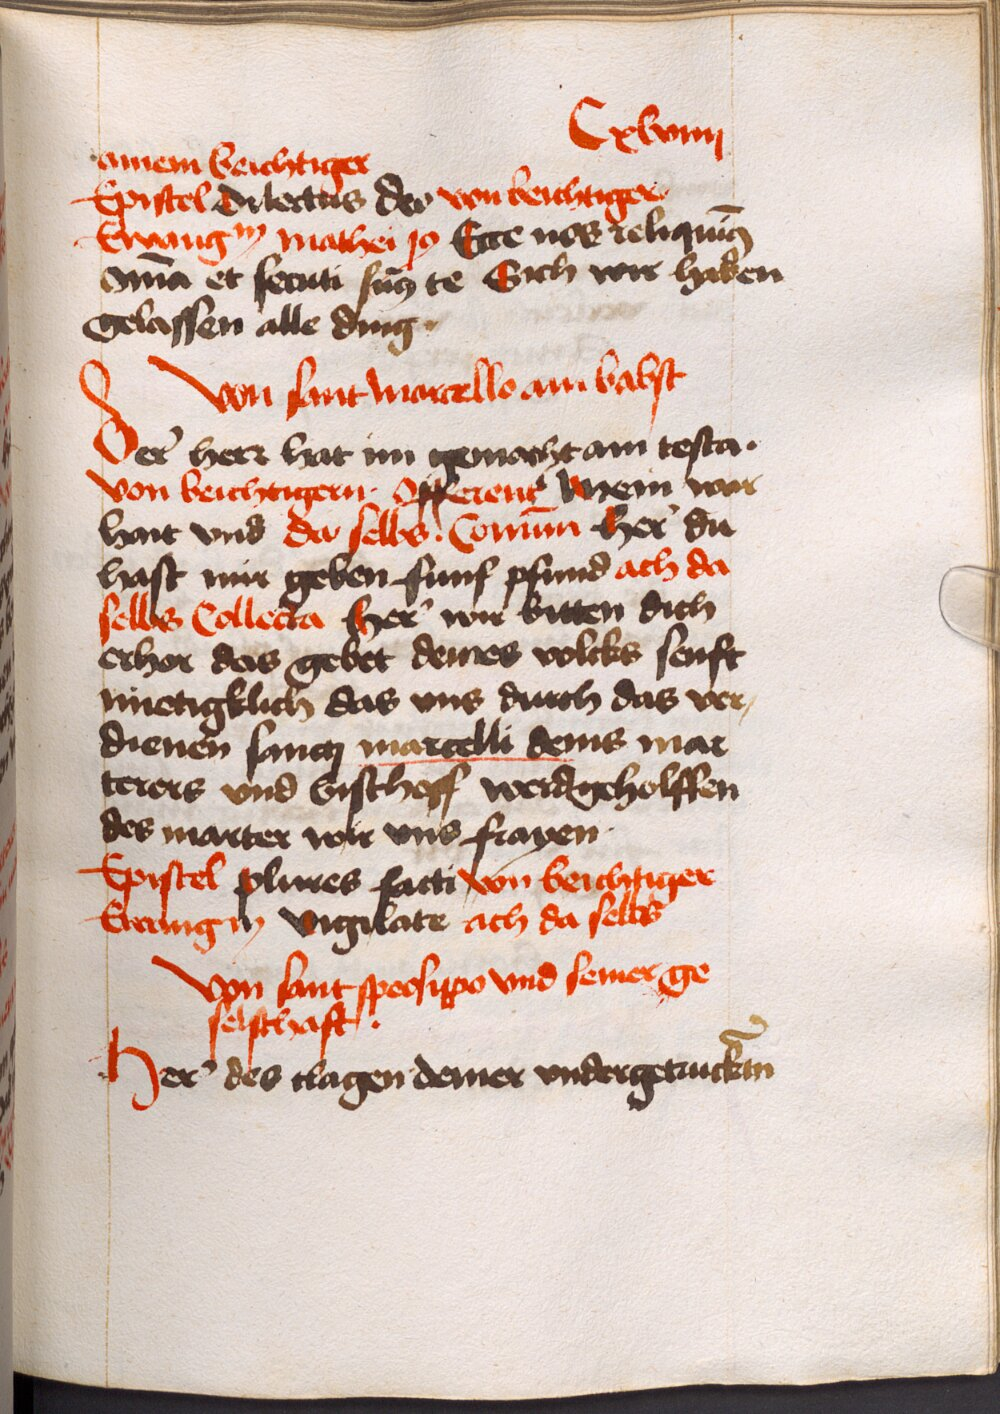 Cxlviiij
ainem beichtiger
Epistel Dilectus deo von beichtiger
Ewangm mathei 19 Ecce nos reliquim9
om̄ia et secuti sum9 te Sich wir haben
gelassen alle ding
Von sant Marcello ain babst
Der herr hat im gemacht ain testa
von beichtigern Offerent Mein war
hait vnd da selbs Comun̄ Her du
hast mir geben funf pfund ach da
selbs Collecta Her wir bitten dich
erhor das gebet deines volcks senft
mietigklich das vns durch das ver
dienen sancti marcelli deins mar
terers vnd bischoff werd geholffen
des marter wir vns frayen
Epistel plures facti von beichtiger
Ewangm vigilate ach da selbs
Von sant speosippo vnd seiner ge
selschaft
Her des clagen deiner vndergetruckten